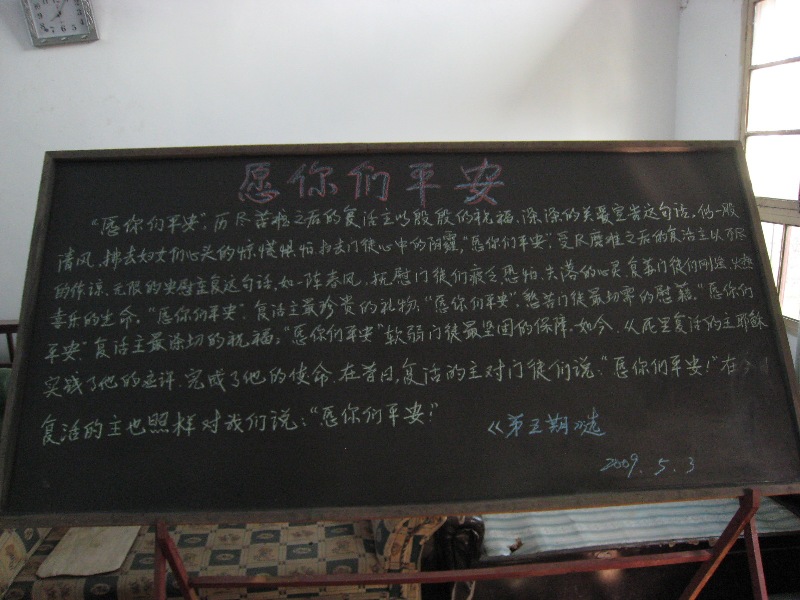 愿你们平安
"愿你们平安",历尽苦难之后的复活主以殷殷的祝福,深深的关爱宣告这句话,似一股
清风,拂去妇女们心头的惊慌惧怕扫去门徒心中的阴霾,"愿你们平安",受尽磨难之后的复活主以不尽
的体谅,无限的安慰重复这句话,如一阵春风,抚慰门徒们疲乏,恐怕,失落的心灵,复苏门徒们刚
喜乐的生命:"愿你们平安"复活主最珍贵的礼物:"愿你们平安",愁苦门徒最切需的慰藉,"愿你们
平安"复活主最深切的祝福:"愿你们平安"软弱门徒最坚固的保障,如今,从死里复活的主耶稣
实践了他的应许,完成了他的使命,在昔日,复活的主对门徒们说:"愿你们平安!"在今日
复活的主也照样对我们说:"愿你们平安!"
《第五期
2009.5.3